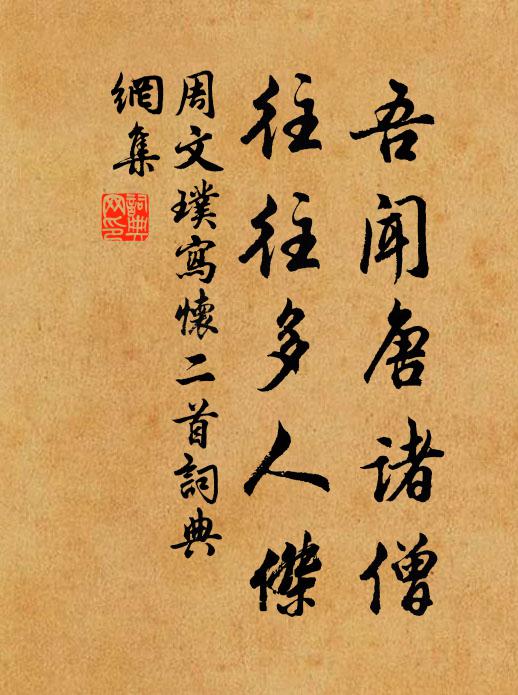 吾聞唐諸僧
往往多人傑
周文璞寫懷二首詞典
網集
詞典
网印